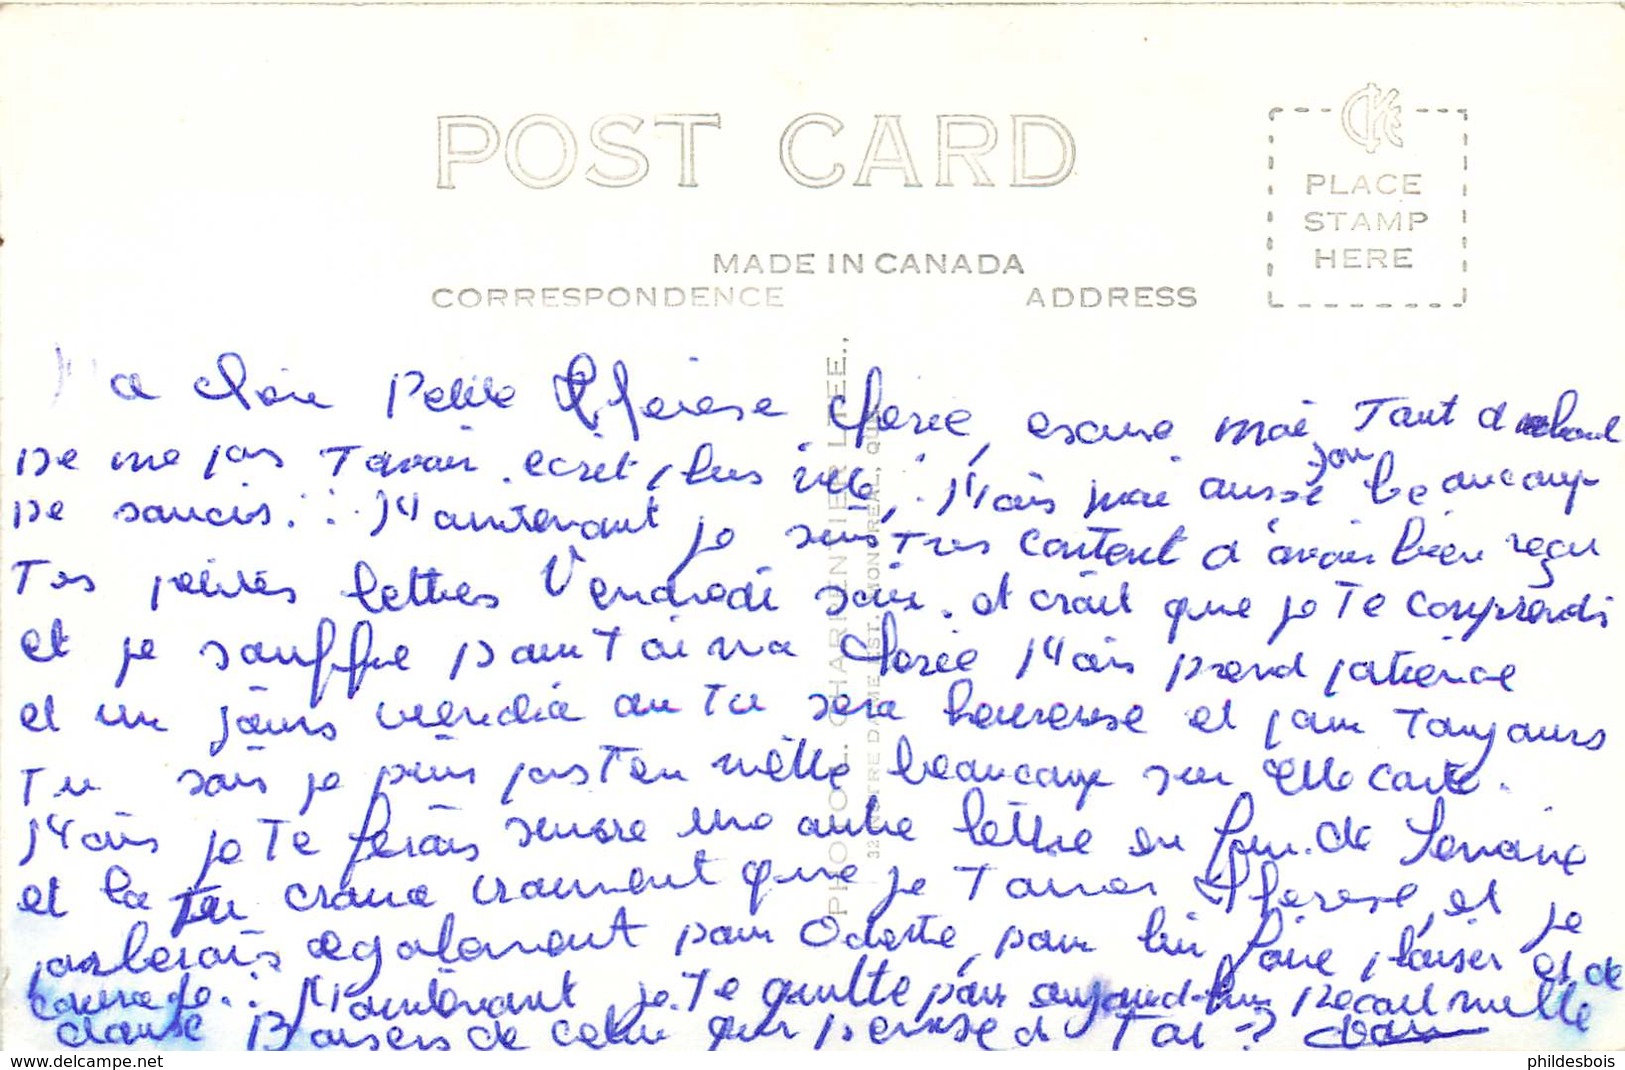 POST CARD
PLACE
STAMP
HERE
MADE IN CANADA
CORRESPONDENCE
ADDRESS
PHOTO J. CHARPENTIER LTEE.,
NOTRE DAME EST. MONTREAL, QUE.
Petite Therese cherie, excuse moi Tant d
De me pas T avoir ecrit plus vite, Mais moi aussi j'ai beaucoup
De soucis... Maintenant je suis Tres content d avoir bien reçu
Tes petites lettres Vendredi soir. et crait que je Te comprends
et je souffre pour Toi ma cherie Mais prend patience
et un jours viendra ou Tu sera heureuse et pour Toujours
Tu sais je puis pas T en mettre beaucoup sur cette carte.
Mais je Te ferais encore une autre lettre en fin de semaine
et la Tu craira vraiment que je T aimes Therese, et je
parlerais egalement pour Odette, pour lui faire plaisir et de
courage.. Maintenant je Te quitte pour aujourd-hui recoit mille
doux Baisers de celui qui pense a Toi
phildesbois
delcampe.net